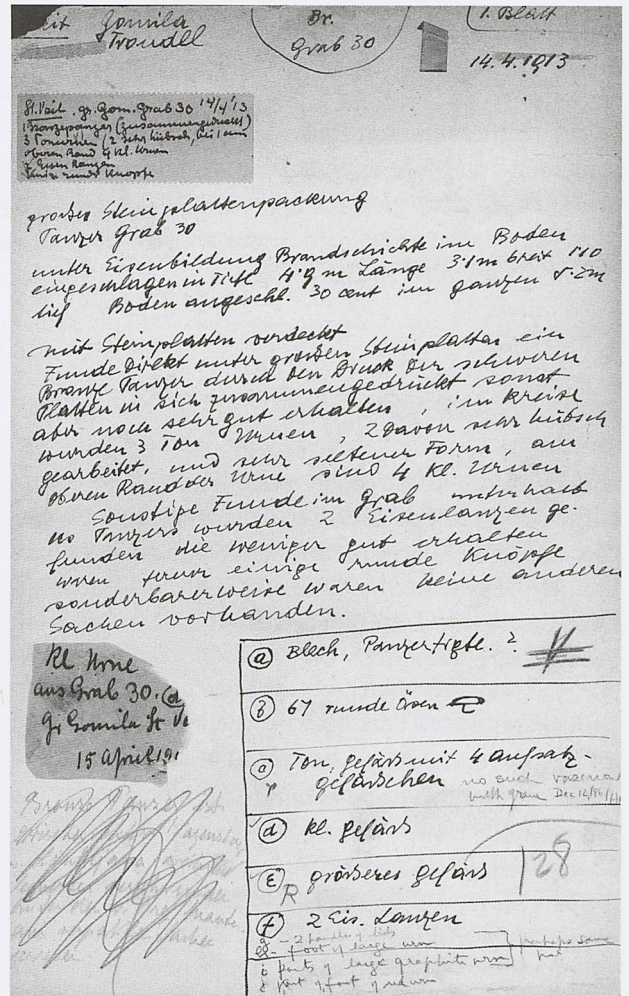 Gomila
Trondel
Br.
Grab 30
1. Blatt
14.4.1913
St. Veit. gr. Gom. Grab 30 14/4 13
1 Bronzepanzer (zusammengedrückt)
3 Tonurnen (2 sehr hübsch, bei 1 am
oberen Rand 4 kl. Urnen
2 Eisen lanzen
runde Knöpfe
großes Steinplattenpackung
Panzer Grab 30
unter Eisenbildung Brandschichte im Boden
eingeschlagen in Tiefe 4 m Länge 3·1m breit 1·10
tief Boden angeschl. 30 cent im ganzen
mit Steinplatten verdeckt
Funde Direkt unter großen Steinplatten ein
Bronze Panzer durch den Druck der schweren
Platten in sich zusammengedrückt sonst
aber noch sehr gut erhalten, im Kreise
wurden 3 Ton Urnen, 2 davon sehr hübsch
gearbeitet, und sehr seltener Form, am
oberen Rand der Urne sind 4 kl. Urnen
Sonstige Funde im Grab unterhalb
des Panzers wurden 2 Eisenlanzen ge-
funden die weniger gut erhalten
waren ferner einige runde Knöpfe
sonderbarerweise waren keine anderen
Sachen vorhanden.
kl Urne
aus Grab 30. (d)
gr Gomila St
15 April 191
a Blech, Panzer ?
b 67 runde Ösen
Ton, gefäss mit 4 aufsatz-
gefässchen
no such
with grave Dec 12
d kl. gefäss
E grösseres gefäss
R
128
f 2 Eis. Lanzen
g - 2 handles of lids
- foot of large urn
perhaps same
i parts of large graphite urn
j part of foot of urn
Bronze Panzer